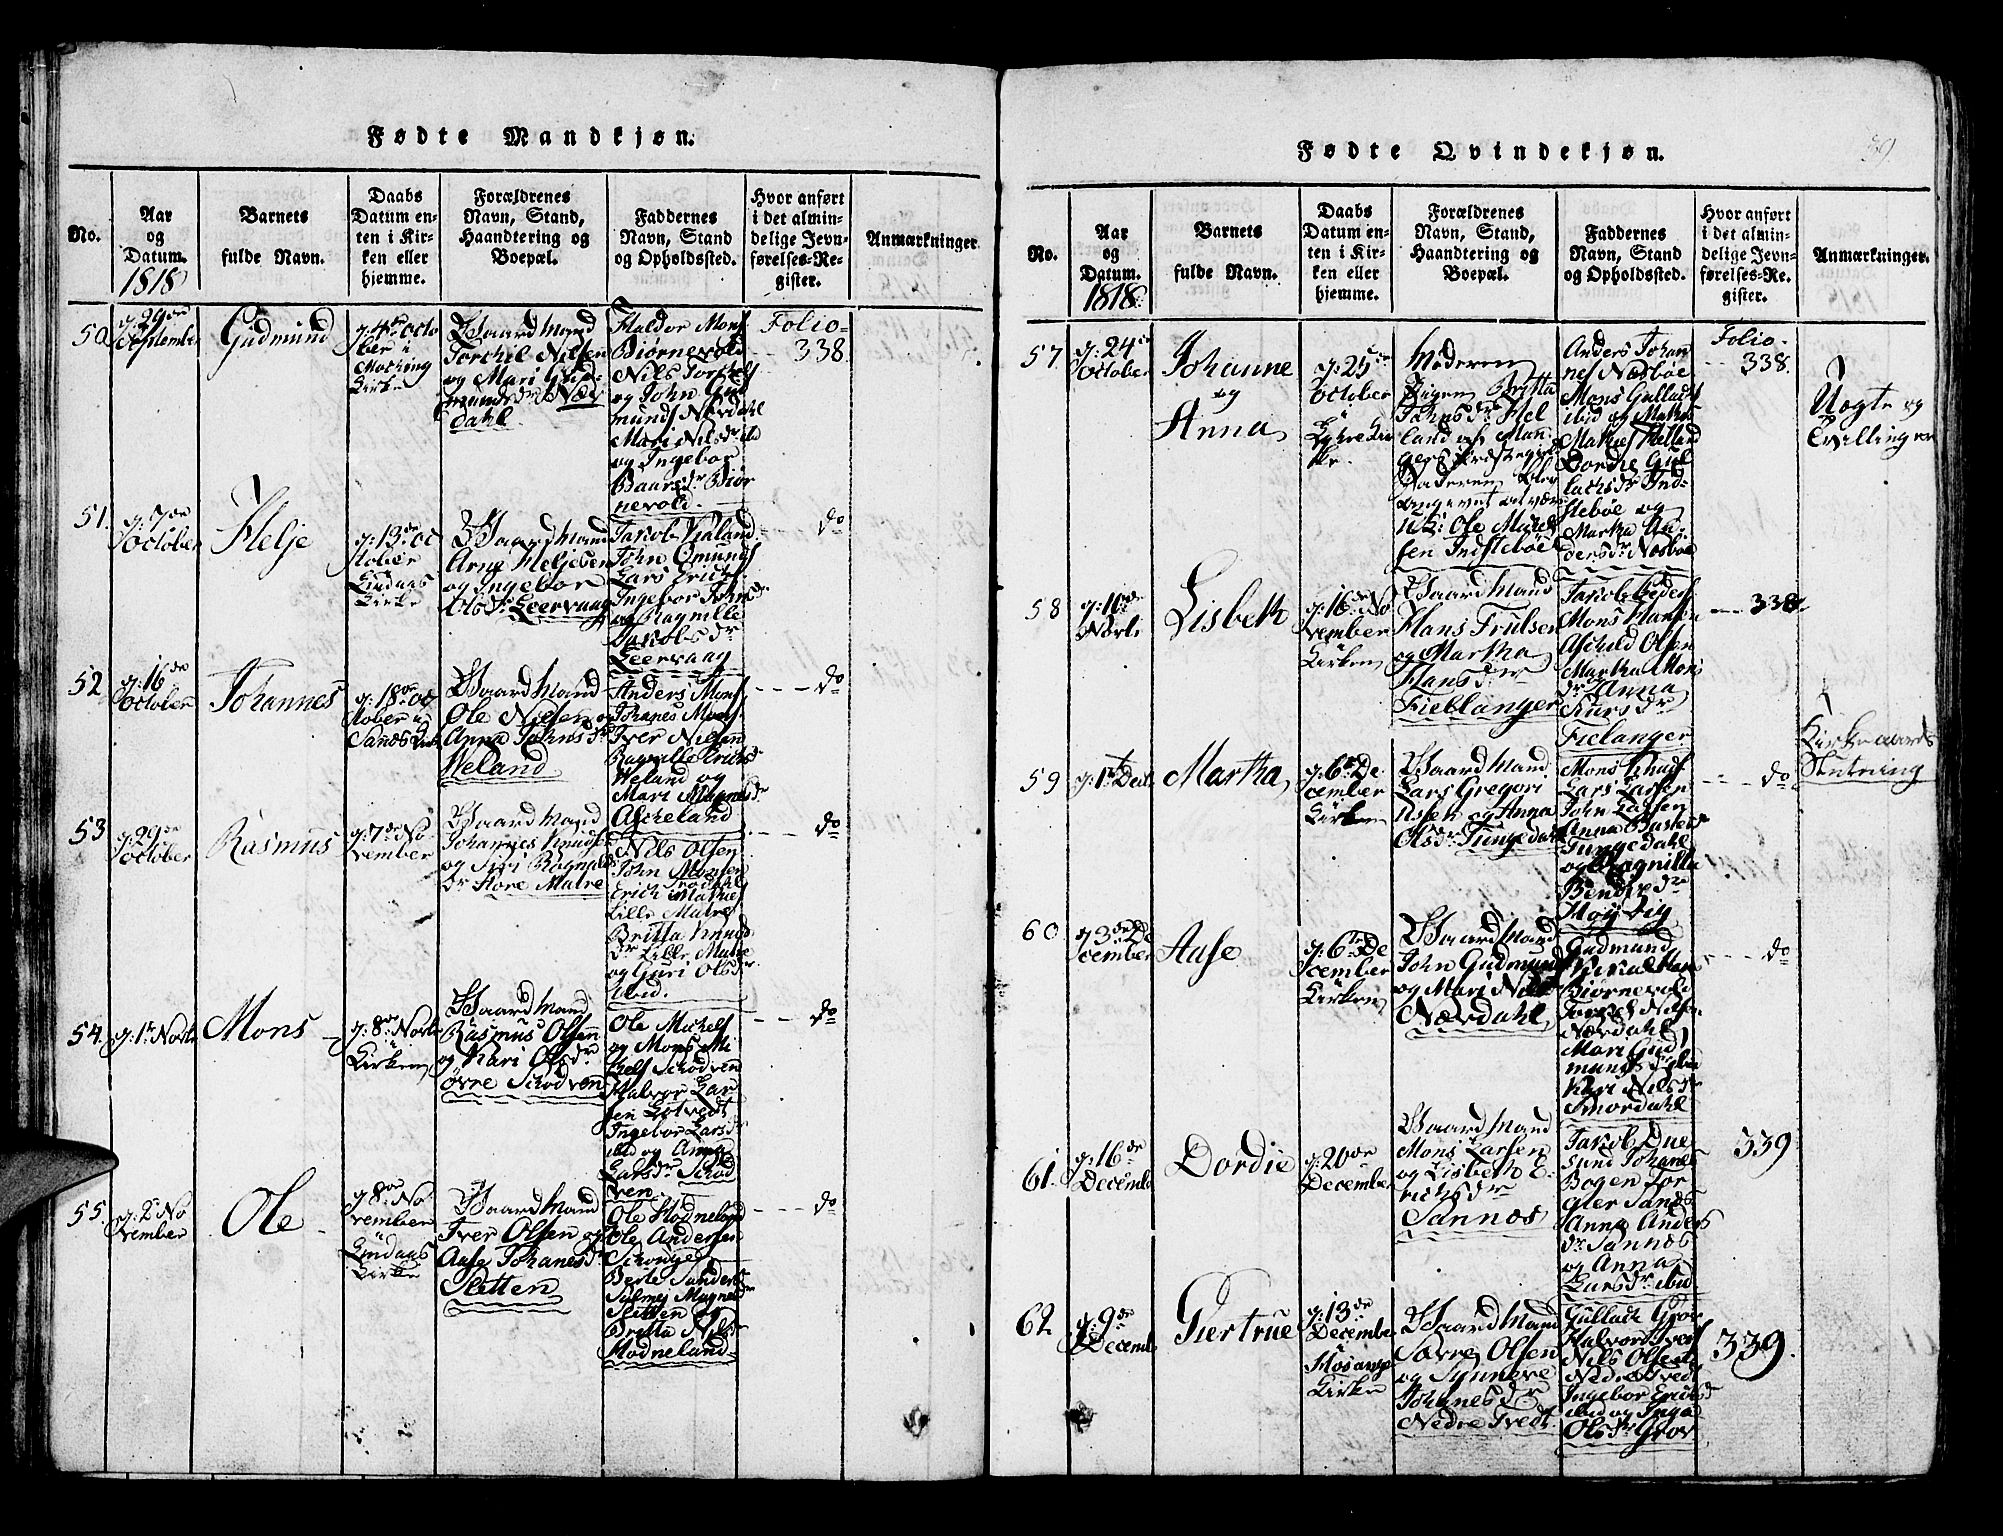 Fødte Mandkjøn.
No.
Aar
og
Datum.
1818
Barnets
fulde Navn.
Daabs
Datum en-
ten i Kir-
ken eller
hjemme.
Forældrenes
Navn, Stand,
Haandtering og
Boepæl.
Faddernes
Navn, Stand
og Opholdssted.
Hvor anført
i det almin-
delige Jevn-
førelses-Re-
gister.
Anmærkninger
50
d: 29de
September
Gudmund
d: 4de Octo
ber i
Kirke
Gaard Mand
Torchil Nilsen
og Mari Gud-
munds dr Nær
dahl.
Haldor Mons
Biørnevold
Nils Torchels
og John Gud
munds Nærdahl
Mari Nils dr ibid
og Ingebor
Baars dr Biør
nevold.
Folio-
338.
51.
d: 7de
October
Helje
d: 13de Oc
tober
Lindaas
Kirke
Gaard Mand
Arne Heljesen
og Ingebor
Ols dr Leervaag
Jakob
John Omunds
Lars Erichs
Ingebor Johns dr
og Ragnille
Jakobs dr
Leervaag
do
52
d: 16de
October
Johannes
d: 18de Oc
tober i
Sandnes Kirke
Gaard Mand
Ole Nilsen og
Anna Johns dr
Weland
Anders Mons
Johanes Mons
Iver Nilsen
Ragnille Erichs dr
Weland og
Mari Magnes dr
Ascheland
do
53
d: 29de
October
Rasmus
d: 7de No
vember
Gaard Mand
Johannes Knuds
og Siri Ragnalds
dr Store Matre
Nils Olsen
John Monsen
Erich Mathies
Lille Matre
Britta Knuds
dr Lille Matre
og Guri Ols dr
ibid.
do
54.
d: 1te Novbr
Mons
d: 8de Novbr
i
Kirken
Gaard Mand
Rasmus Olsen
og Kari Ols dr
øvre Schodven
Ole Michels
og Mons Mi
chels Schodven
Halvor Lar
sen Lotvedt
Ingebor Lars dr
ibid og Anna
Lars dr Schod
ven.
do
55.
d: 2de No
vember
Ole
d: 8de No
vember
Lindaas
Kirke
Gaard Mand
Iver Olsen og
Aase Johanes dr
Sletten
Ole Hodneland
Ole Andersen
Schouge
Berte Sanders
Sylmej Magnes dr
Sletten og
Britta Nils dr
Hodneland
do
Fødte Qvindekjøn.
39.
No.
Aar
og
Datum.
1818.
Barnets
fulde Navn.
Daabs
Datum en-
ten i Kir-
ken eller
hjemme.
Forældrenes
Navn, Stand,
Haandtering og
Boepæl.
Faddernes
Navn, Stand
og Opholdssted.
Hvor anført
i det almin-
delige Jevn-
førelses-Re-
gister.
Anmærkninger.
57
d: 24de
October
Johanne
og
Anna
d: 25de
October
i
Kir
ke.
Moderen
Pigen Britta
Johns dr Hel
land af Man
gers Præstegield
Faderen blev
angivet at væ
re: Ole Mikel
sen Indstebøe
Anders Johan
nes Næsbøe
Mons Gullachs
ibid og Mathi
Mathies Helland
Dordie Gul
lachs dr Ind-
stebøe og
Martha An
ders dr Næsbøe
Folio-
338.
Uægte og
Tvillinger
58
d: 10de
Novbr
Lisbeth
d: 16de No
vember
i
Kirken
Gaard Mand
Hans Trulsen
og Martha
Hans dr
Fieblanger
Jakob Peders
Mons Hansen
Aschild Olsen
Martha Mons
dr Anna
dr
Fielanger
338
59
d: 1te Decbr
Martha
d: 6te De
cember
i
Kirken
Gaard Mand
Lars Gregori
ussen og Anna
Ols dr Tungedahl
Mons Knuds
Lars Larsen
John Larsen
Anna
Tungedahl
og Ragnilla
dr
do
Kirkegaards
60
d: 3de De
cember
Aase
d: 6te De
cember
i
Kirken
Gaard Mand
John Gudmunds
og Mari Nils dr
Nærdahl
Gudmund
Biørnevold
Torchel Nilsen
Nærdahl
Mari Gud
munds dr ibid
Kari Nils dr
Smordahl
do
61.
d: 16de
Decembr
Dordie
d: 20de
December
Gaard Mand
Mons Larsen
og Lisbeth E
richs dr
Sannæs
Jakob Due
sund Johanes
Bogen for
gier Sannæs
Anna Anders
dr Sannæs
og Anna
Lars dr ibid
339
62
d: 9de
Decembr
Giertrue
d: 13de
December
i
Kirken
Gaard Mand
Siver Olsen
og Synneve
Johanes dr
Nedre Tvedt
Gullach Grov
Halvor Ivers
Nils Olsen
Nedre Tvedt
Ingebor Erichs dr
ibid og Inga
Ols dr Grov
339.